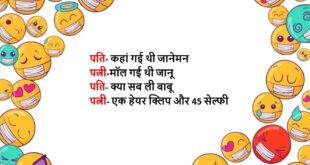 पति- कहां गई थी जानेमन
पत्नी-मॉल गई थी जानू
पति- क्या सब ली बाबू
पत्नी- एक हेयर क्लिप और 45 सेल्फी